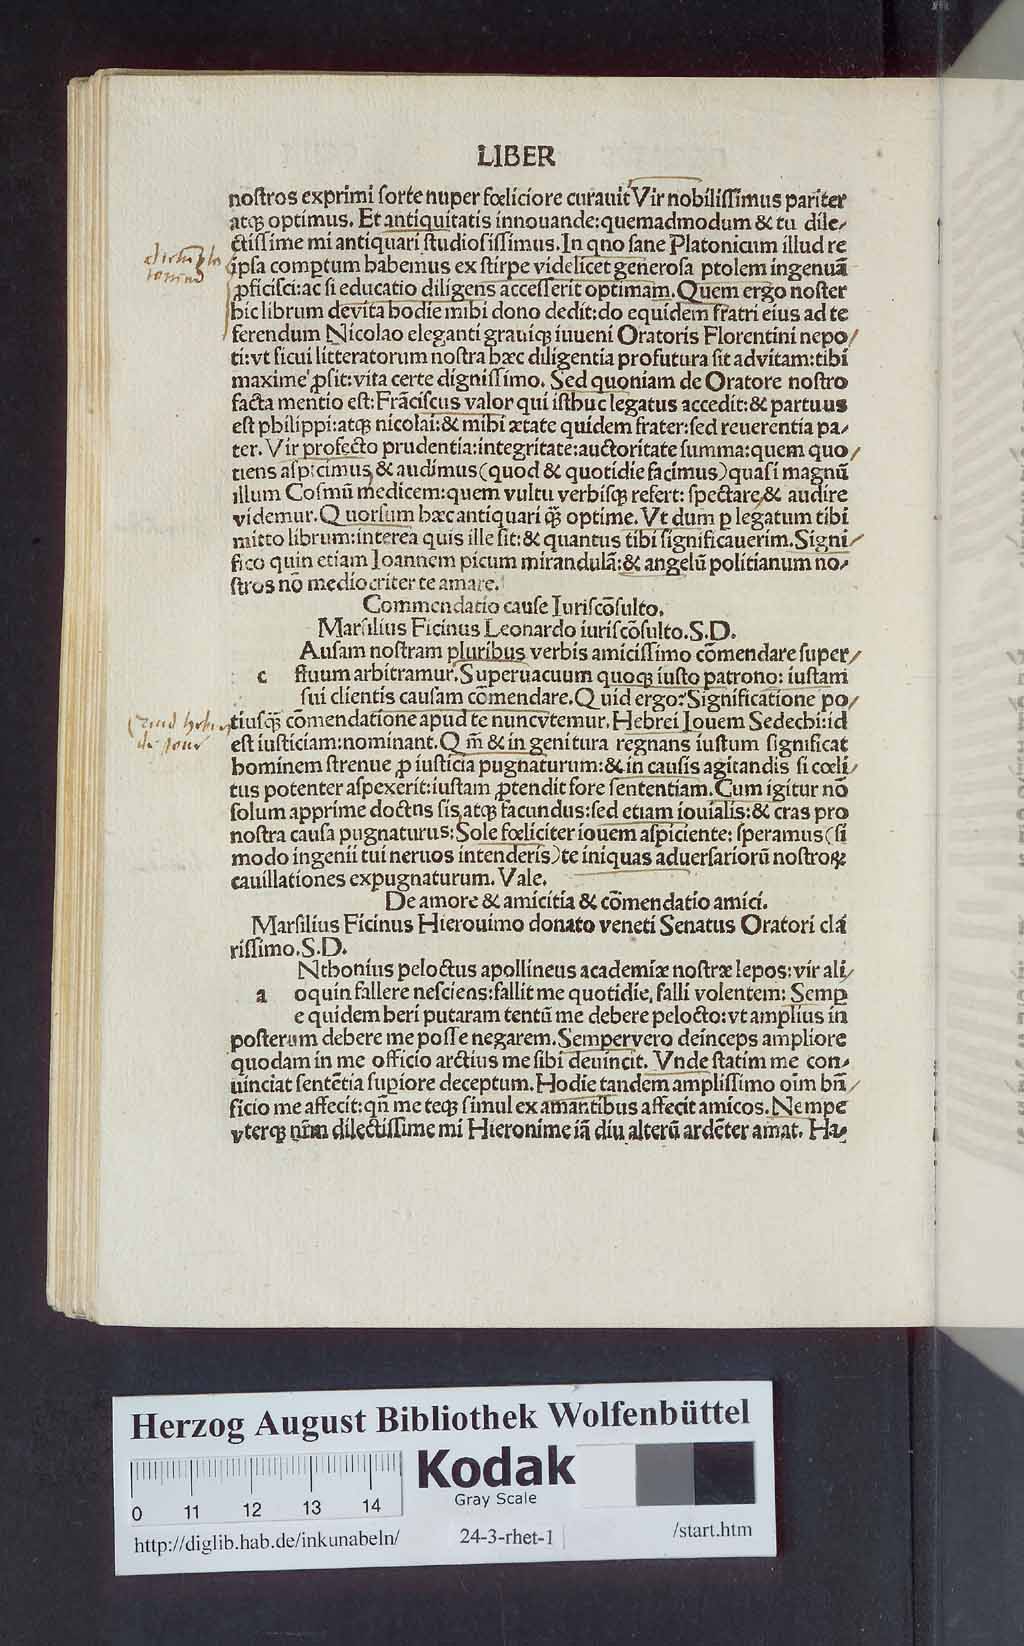 LIBER
nostros exprimi sorte nuper fœliciore curauit Vir nobilissimus pariter
atq; optimus. Et antiquitatis innouande: quemadmodum & tu dile-
ctissime mi antiquari studiosissimus. In quo sane Platonicum illud re
ipsa comptum habemus ex stirpe videlicet generosa ptolem ingenuā
ꝓficisci: ac si educatio diligens accesserit optimam. Quem ergo noster
hic librum devita hodie mihi dono dedit: do equidem fratri eius ad te
ferendum Nicolao eleganti grauiq; iuueni Oratoris Florentini nepo/
ti: vt sicui litteratorum nostra hæc diligentia profutura sit advitam: tibi
maxime ꝓsit: vita certe dignissimo. Sed quoniam de Oratore nostro
facta mentio est: Frāciscus valor qui isthuc legatus accedit: & partuus
est philippi: atq; nicolai: & mihi ætate quidem frater: sed reuerentia pa/
ter. Vir profecto prudentia: integritate: auctoritate summa: quem quo/
tiens aspicimus, & audimus (quod & quotidie facimus) quasi magnū
illum Cosmū medicem: quem vultu verbisq; refert: spectare, & audire
videmur. Quorsum hæc antiquari q̄ȝ optime. Vt dum ꝑ legatum tibi
mitto librum: interea quis ille sit: & quantus tibi significauerim. Signi/
fico quin etiam Ioannem picum mirandulā: & angelū politianum no/
stros nō mediocriter te amare.
Commendatio cause Iuriscōsulto.
Marsilius Ficinus Leonardo iuriscōsulto. S. D.
Ausam nostram pluribus verbis amicissimo cōmendare super/
c fluum arbitramur. Superuacuum quoq; iusto patrono: iustam
sui clientis causam cōmendare. Quid ergo? Significatione po/
tiusq̄ȝ cōmendatione apud te nuncvtemur. Hebrei Iouem Sedechi: id
est iusticiam: nominant. Q m̄ & in genitura regnans iustum significat
hominem strenue ꝓ iusticia pugnaturum: & in causis agitandis si cœli/
tus potenter aspexerit: iustam ꝓtendit fore sententiam. Cum igitur nō
solum apprime doctns sis, atq; facundus: sed etiam iouialis: & cras pro
nostra causa pugnaturus: Sole fœliciter iouem aspiciente: speramus (si
modo ingenii tui neruos intenderis) te iniquas aduersariorū nostroꝝ
cauillationes expugnaturum. Vale.
De amore & amicitia & cōmendatio amici.
Marsilius Ficinus Hierouimo donato veneti Senatus Oratori cla
rissimo. S. D.
Nthonius peloctus apollineus academiæ nostræ lepos: vir ali/
a oquin fallere nesciens: fallit me quotidie, falli volentem: Semꝑ
e quidem heri putaram tentū me debere pelocto: vt amplius in
posterum debere me posse negarem. Sempervero deinceps ampliore
quodam in me officio arctius me sibi deuincit. Vnde statim me con/
uinciat sentētia suꝑiore deceptum. Hodie tandem amplissimo oīm bn̄/
ficio me affecit: qn̄ me teq; simul ex amantibus affecit amicos. Nempe
vterq; nr̄m dilectissime mi Hieronime iā diu alterū ardēter amat. Ha/
Herzog August Bibliothek Wolfenbüttel
0 11 12 13 14
Kodak
Gray Scale
http://diglib.hab.de/inkunabeln/ 24-3-rhet-1 /start.htm